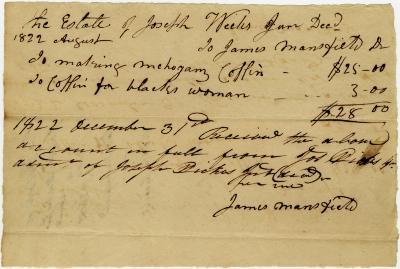 the Estate of Joseph Weeks Junr Decd
1822 August To James Mansfield Dr
To making mehogany Coffin -- $25-00
To Coffin for blacks woman 3-00
$28 00
1822 December 31st Received the above
account in full from
of Joseph
per me
James Mansfield